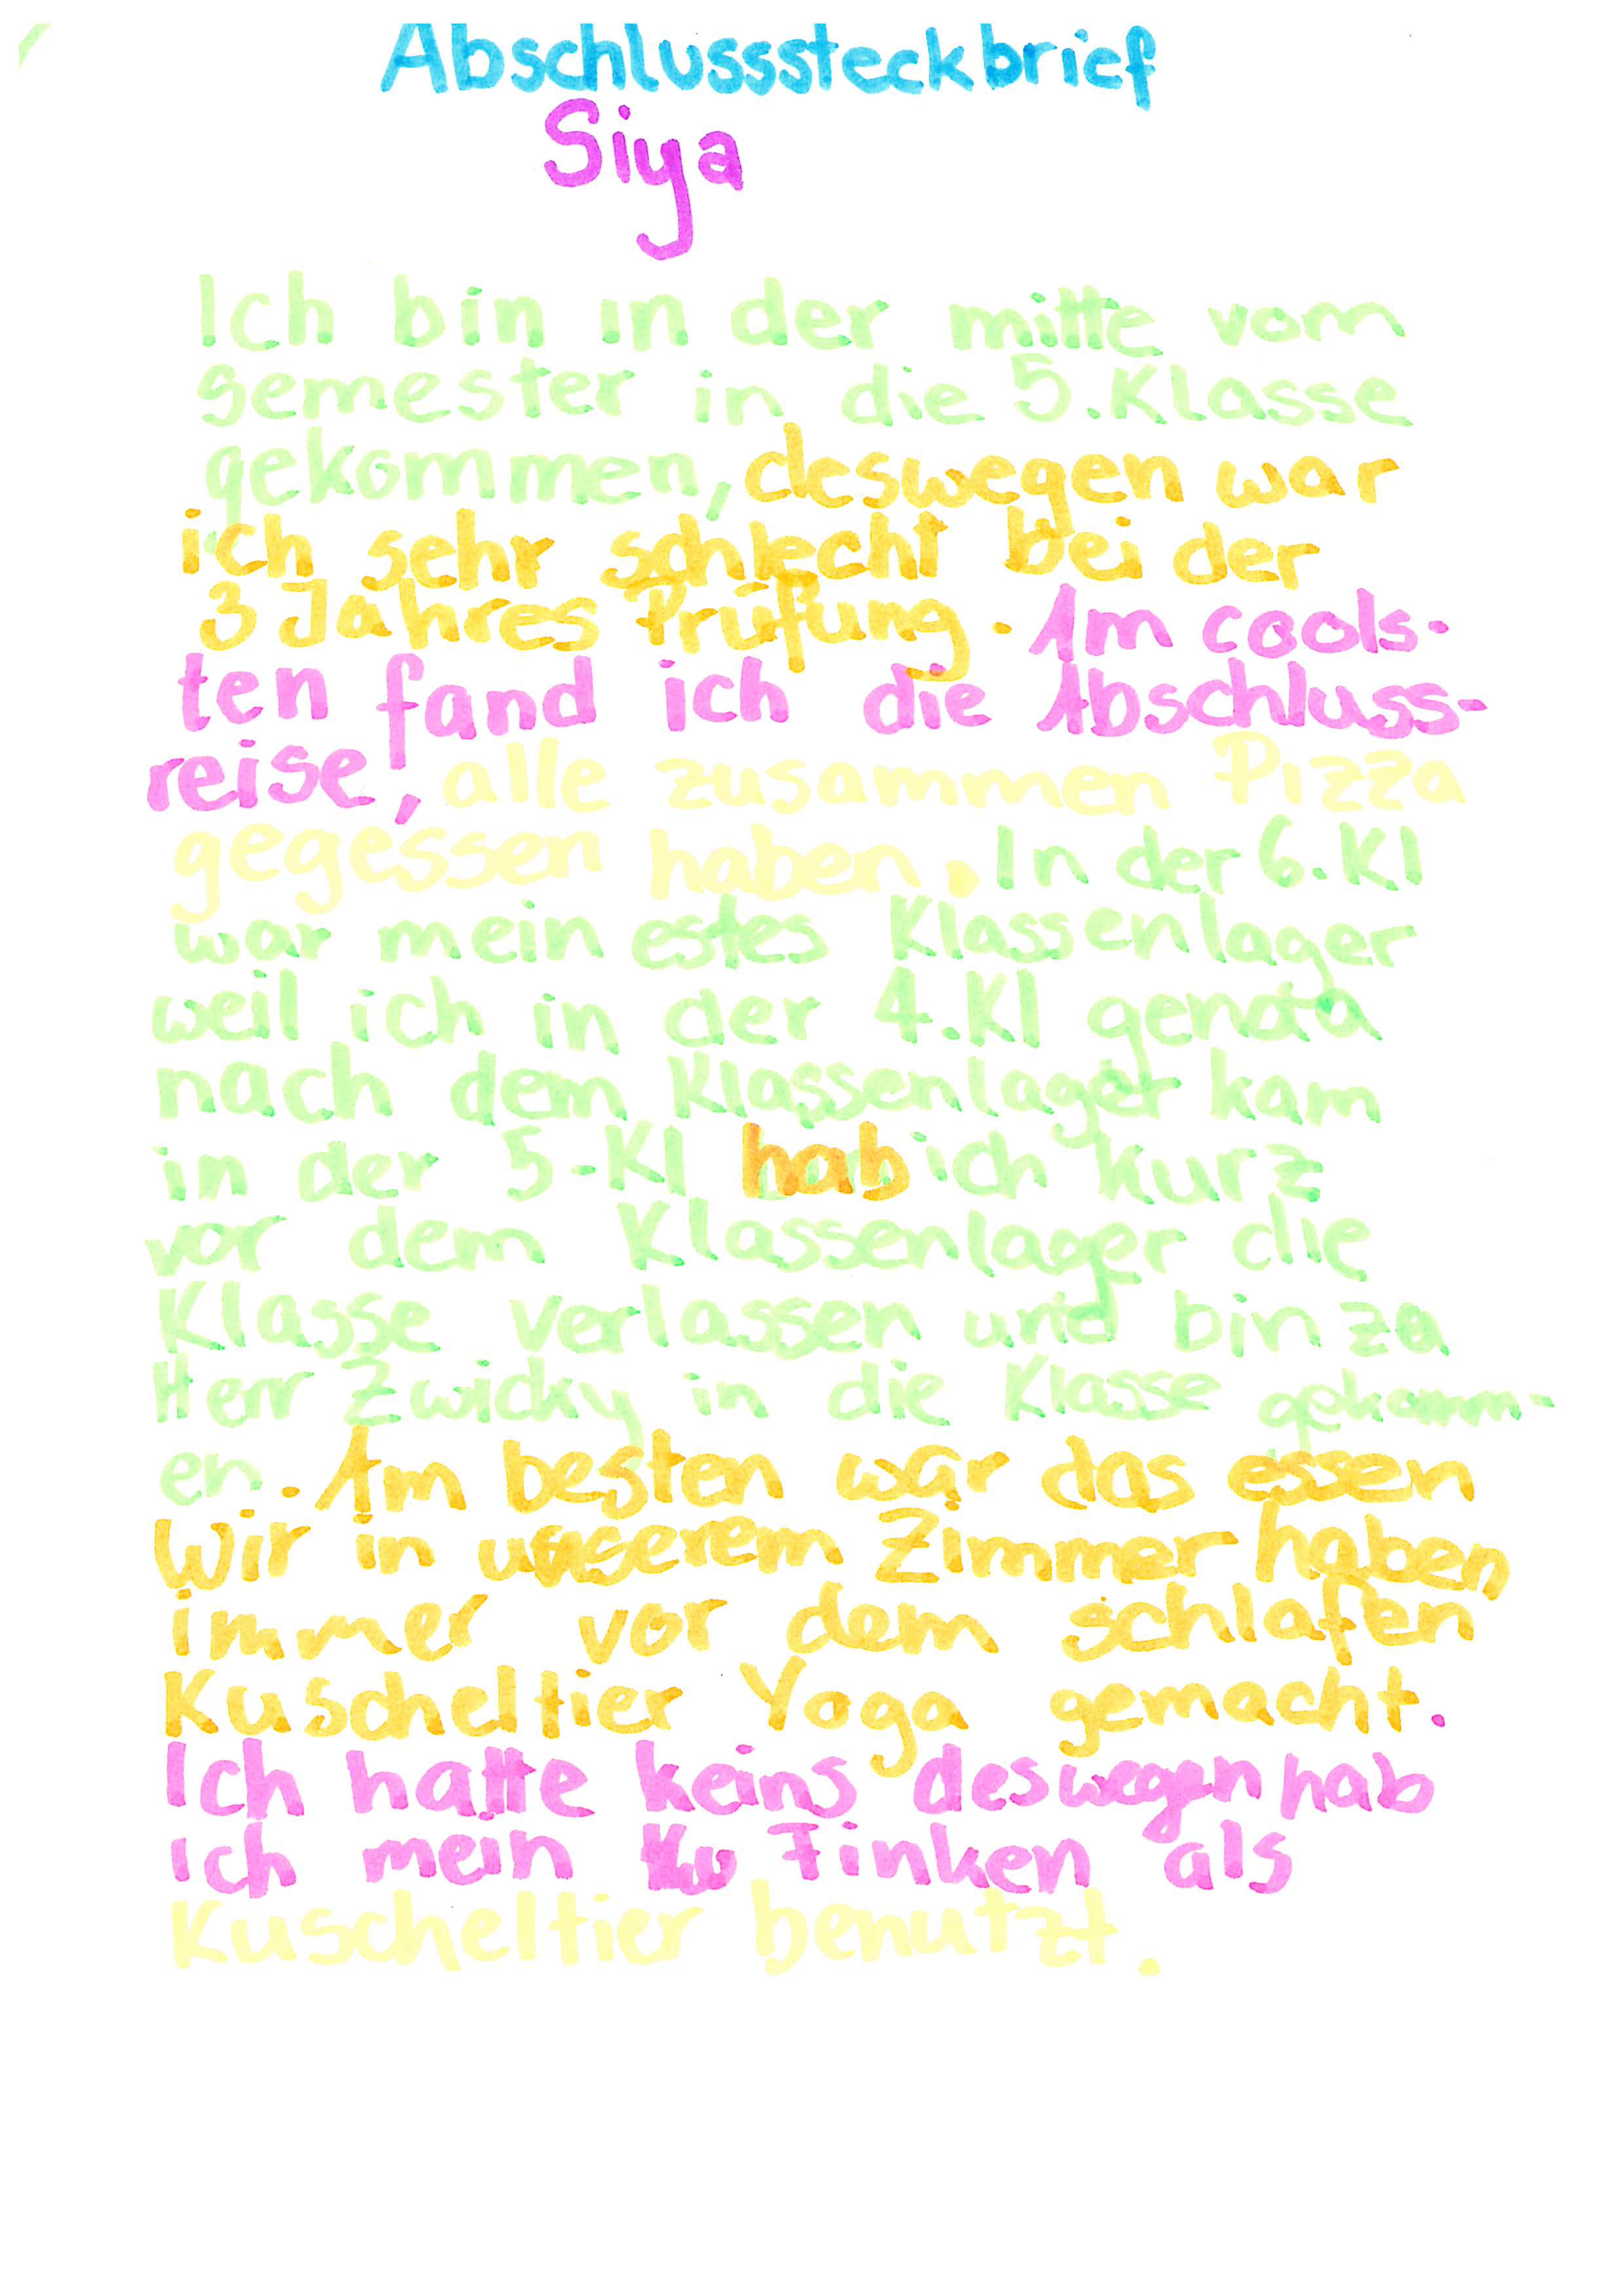 Abschlusssteckbrief
Siya
Ich bin in der mitte vom
semester in die 5.Klasse
gekommen, deswegen war
ich sehr schlecht bei der
3 Jahres Prüfung. Am cools-
ten fand ich die Abschluss-
reise, alle zusammen Pizza
gegessen haben. In der 6.Kl
war mein estes Klassenlager
weil ich in der 4.Kl
nach dem Klassenlager kam
in der 5-Kl hab ich kurz
vor dem Klassenlager die
Klasse verlassen und bin zu
Herr Zwicky in die Klasse gekomm-
en. Am besten war das essen
Wir in unserem Zimmer haben
immer vor dem schlafen
Kuscheltier Yoga gemacht.
Ich hatte keins deswegen hab
ich mein Finken als
Kuscheltier benutzt.